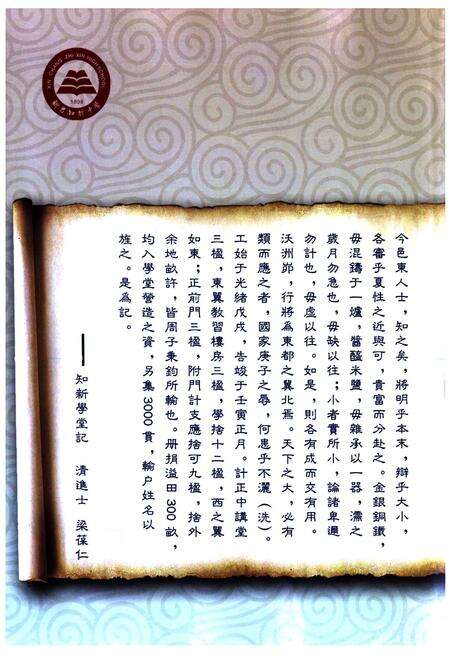 XIN CHANG ZHI XIN HIGH SCHOOL
1898
新昌知新中学
今邑東人士，知之矣，將明乎本末，辯乎大小，
各審乎夏性之近與可，貴富而分赴之。金銀銅鐵，
毋混鑄于一爐，醬醯米鹽，毋雜承以一器，濡之
歲月勿急也，毋缺以往；小者實所小，論諸卑邇
勿計也，毋虛以往。如是，則各有成而交有用。
沃洲峁，行將為東都之冀北焉。天下之大，必有
類而應之者，國家庚子之辱，何患乎不灑（洗）。
工始于光緒戊戌，告竣于壬寅正月。計正中講堂
三楹，東翼教習樓房三楹，學捨十二楹，西之翼
如東；正前門三楹，附門計支應捨可九楹，捨外
余地畝許，皆周子秉鈞所輸也。册捐溢田300畝，
均入學堂營造之資，另集3000貫，輸户姓名以
旌之。是為記。
——知新學堂記　清進士　梁葆仁